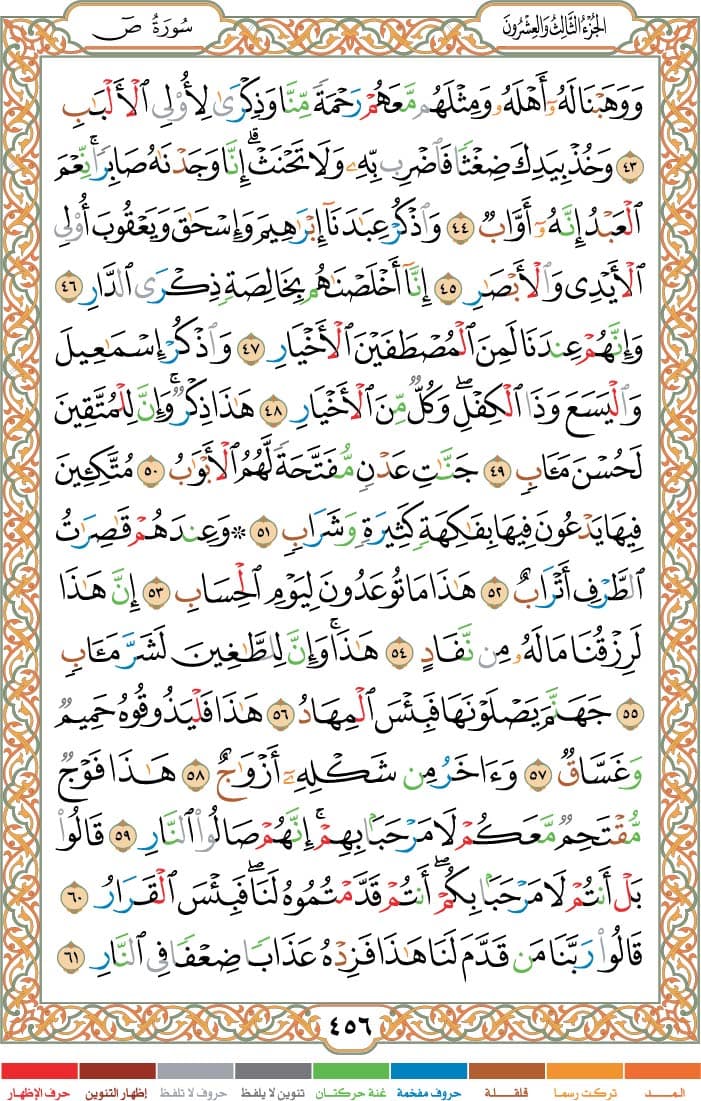 الجزء الثالث والعشرون
سورة ص
وَوَهَبْنَا لَهُۥٓ أَهْلَهُۥ وَمِثْلَهُم مَّعَهُمْ رَحْمَةً مِّنَّا وَذِكْرَىٰ لِأُو۟لِى ٱلْأَلْبَـٰبِ
٤٣ وَخُذْ بِيَدِكَ ضِغْثًا فَٱضْرِب بِّهِۦ وَلَا تَحْنَثْ ۗ إِنَّا وَجَدْنَـٰهُ صَابِرًا ۚ نِّعْمَ
ٱلْعَبْدُ ۖ إِنَّهُۥٓ أَوَّابٌ ٤٤ وَٱذْكُرْ عِبَـٰدَنَآ إِبْرَٰهِيمَ وَإِسْحَـٰقَ وَيَعْقُوبَ أُو۟لِى
ٱلْأَيْدِى وَٱلْأَبْصَـٰرِ ٤٥ إِنَّآ أَخْلَصْنَـٰهُم بِخَالِصَةٍ ذِكْرَى ٱلدَّارِ ٤٦
وَإِنَّهُمْ عِندَنَا لَمِنَ ٱلْمُصْطَفَيْنَ ٱلْأَخْيَارِ ٤٧ وَٱذْكُرْ إِسْمَـٰعِيلَ
وَٱلْيَسَعَ وَذَا ٱلْكِفْلِ ۖ وَكُلٌّ مِّنَ ٱلْأَخْيَارِ ٤٨ هَـٰذَا ذِكْرٌ ۚ وَإِنَّ لِلْمُتَّقِينَ
لَحُسْنَ مَـَٔابٍ ٤٩ جَنَّـٰتِ عَدْنٍ مُّفَتَّحَةً لَّهُمُ ٱلْأَبْوَٰبُ ٥٠ مُتَّكِـِٔينَ
فِيهَا يَدْعُونَ فِيهَا بِفَـٰكِهَةٍ كَثِيرَةٍ وَشَرَابٍ ٥١ ۞ وَعِندَهُمْ قَـٰصِرَٰتُ
ٱلطَّرْفِ أَتْرَابٌ ٥٢ هَـٰذَا مَا تُوعَدُونَ لِيَوْمِ ٱلْحِسَابِ ٥٣ إِنَّ هَـٰذَا
لَرِزْقُنَا مَا لَهُۥ مِن نَّفَادٍ ٥٤ هَـٰذَا ۚ وَإِنَّ لِلطَّـٰغِينَ لَشَرَّ مَـَٔابٍ
٥٥ جَهَنَّمَ يَصْلَوْنَهَا فَبِئْسَ ٱلْمِهَادُ ٥٦ هَـٰذَا فَلْيَذُوقُوهُ حَمِيمٌ
وَغَسَّاقٌ ٥٧ وَءَاخَرُ مِن شَكْلِهِۦٓ أَزْوَٰجٌ ٥٨ هَـٰذَا فَوْجٌ
مُّقْتَحِمٌ مَّعَكُمْ ۖ لَا مَرْحَبًۢا بِهِمْ ۚ إِنَّهُمْ صَالُوا۟ ٱلنَّارِ ٥٩ قَالُوا۟
بَلْ أَنتُمْ لَا مَرْحَبًۢا بِكُمْ ۖ أَنتُمْ قَدَّمْتُمُوهُ لَنَا ۖ فَبِئْسَ ٱلْقَرَارُ ٦٠
قَالُوا۟ رَبَّنَا مَن قَدَّمَ لَنَا هَـٰذَا فَزِدْهُ عَذَابًا ضِعْفًا فِى ٱلنَّارِ ٦١
٤٥٦
المـــد تركت رسما قلقلة حروف مفخمة غنة حركتان تنوين لا يلفظ حروف لا تلفظ إظهار التنوين حرف الإظهار